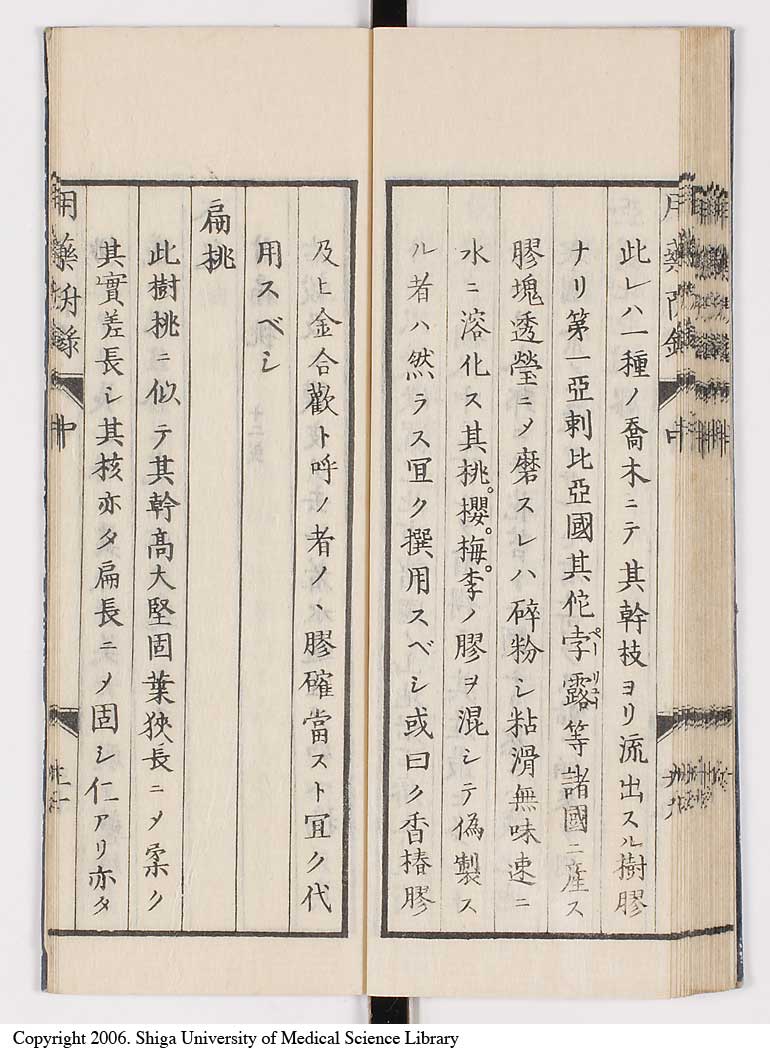 此レハ一種ノ喬木ニテ其幹枝ヨリ流出スル樹膠
ナリ第一亞剌比亞國其佗孛露等諸國ニ産ス
膠塊透瑩ニメ磨スレハ碎粉シ粘滑無味速ニ
水ニ溶化ス其桃。櫻。梅。李ノ膠ヲ混シテ偽製ス
ル者ハ然ラス冝ク撰用スベシ或曰ク香椿膠
及ヒ金合歡ト呼ノ者ノ丶膠確當スト冝ク代
用スベシ
扁桃
此樹桃ニ似テ其幹髙大堅固葉狹長ニメ柔ク
其實差長シ其核亦タ扁長ニメ固シ仁アリ亦タ
用藥
中